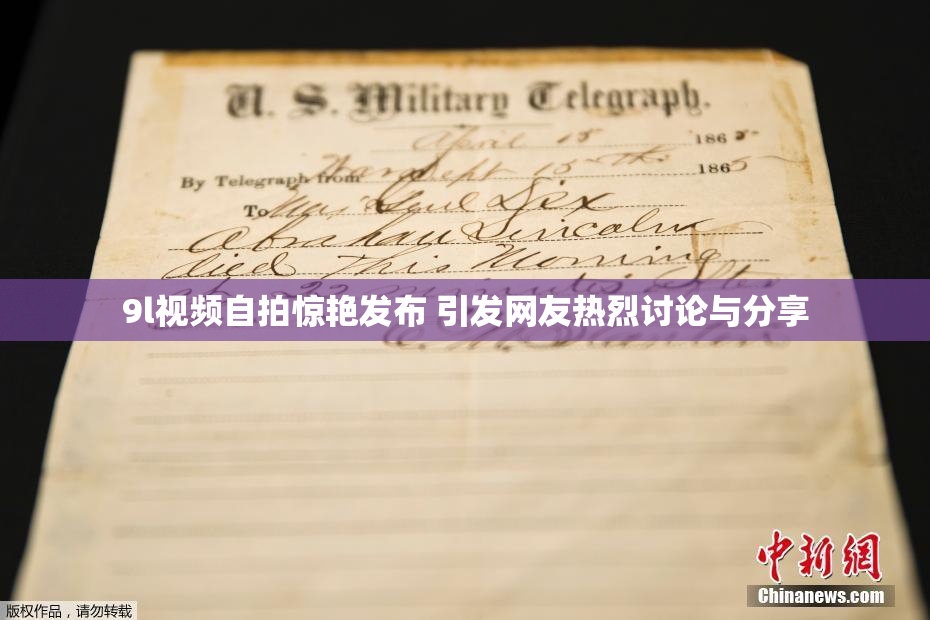 U. S. Military Telegraph.
April 15 1865
By Telegraph from War Dept 15th 1865
To Maj Genl Dix
Abraham Lincoln
died This Morning
at 22 minutes after
9l视频自拍惊艳发布 引发网友热烈讨论与分享
中新网
Chinanews.com
版权作品，请勿转载